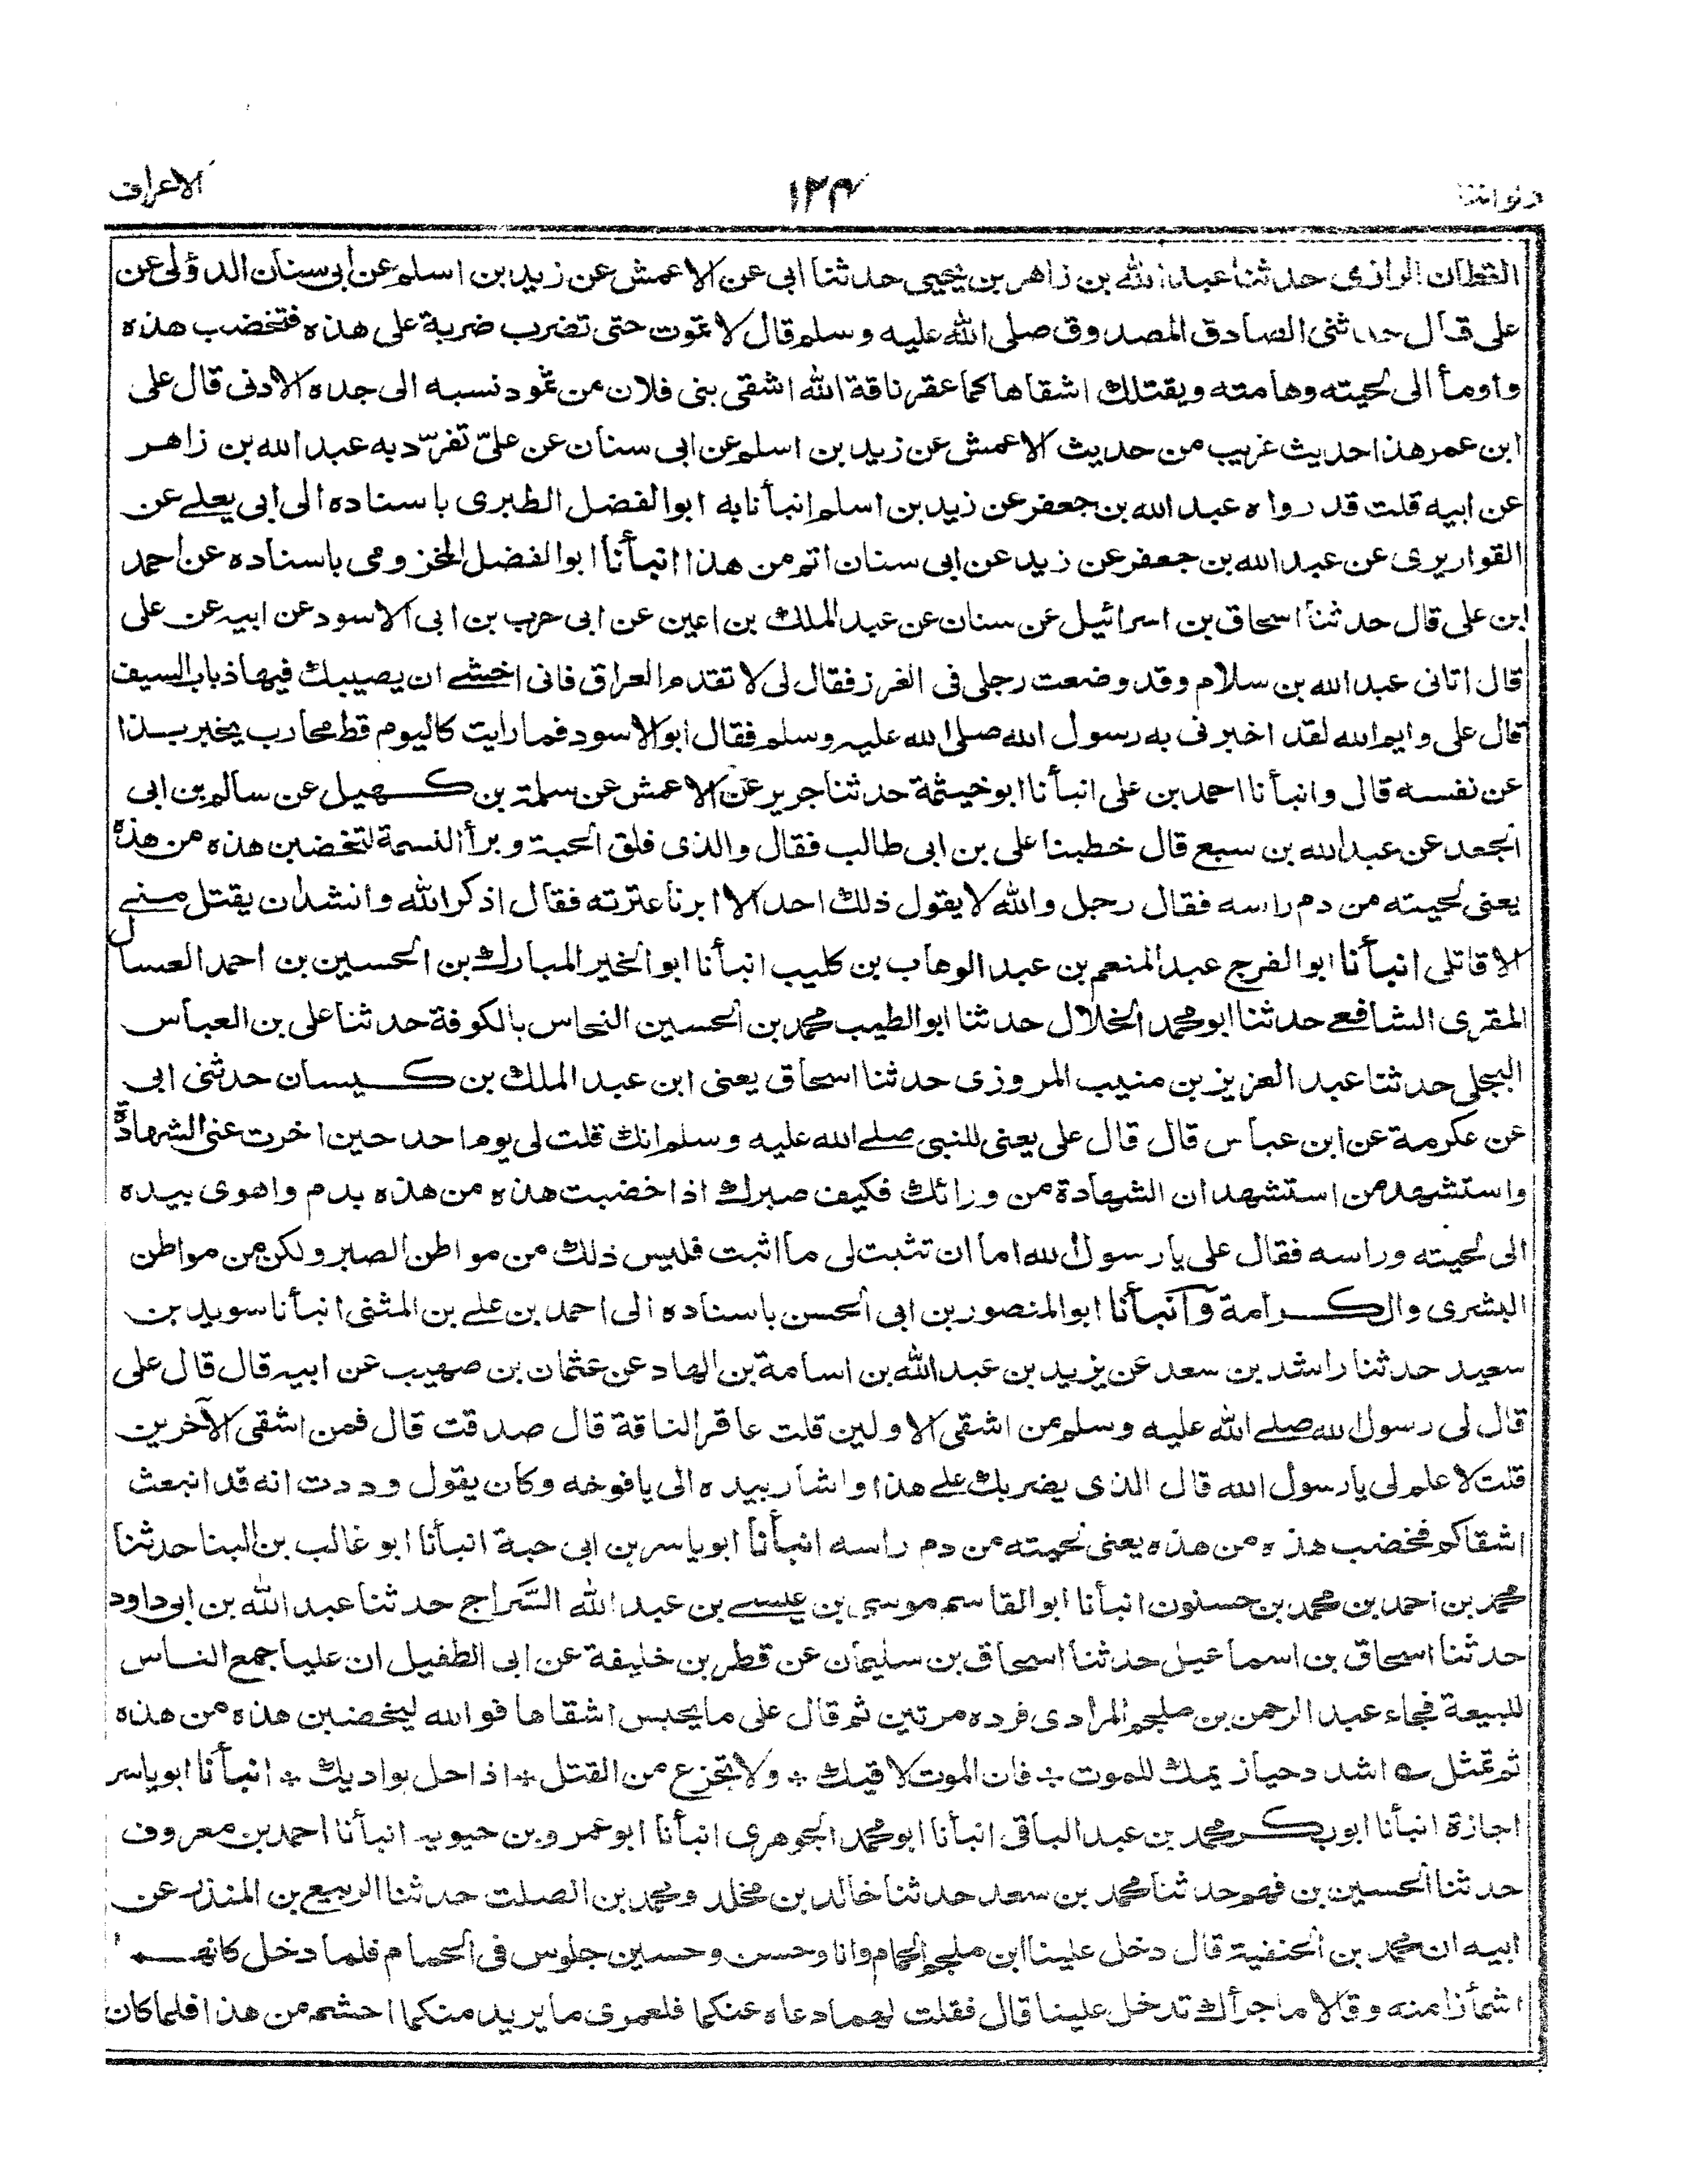 الاعراف ١٢٤
القطان الرازى حدثنا عبد الله بن زاهر بن يحيى حدثنا ابى عن الاعمش عن زيد بن اسلم عن أبى سنان الدؤلى عن
على قال حدثنى الصادق المصدوق صلى الله عليه وسلم قال لا تموت حتى تضرب ضربة على هذه فتخضب هذه
وأومأ الى لحيته وهامته ويقتلك اشقاها كما عقر ناقة الله اشقى بنى فلان من ثمود نسبه الى جده الادنى قال على
ابن عمر هذا حديث غريب من حديث الاعمش عن زيد بن اسلم عن ابى سنان عن علىّ تفرّد به عبد الله بن زاهر
عن ابيه قلت قد رواه عبد الله بن جعفر عن زيد بن اسلم انبأنا به ابو الفضل الطبرى باسناده الى ابى يعلے عن
القواريرى عن عبد الله بن جعفر عن زيد عن ابى سنان اتم من هذا انبأنا ابو الفضل المخزومى باسناده عن أحمد
ابن على قال حدثنا اسحاق بن اسرائيل عن سنان عن عبد الملك بن اعين عن ابى حرب بن ابى الاسود عن ابيه عن على
قال اتانى عبد الله بن سلام وقد وضعت رجلى فى الغرز فقال لى لا تقدم العراق فانى اخشے ان يصيبك فيها ذباب السيف
قال على وايم الله لقد اخبرنى به رسول الله صلى الله عليه وسلم فقال أبو الاسود فما رايت كاليوم قط محارب يخبر بذا
عن نفسه قال وانبأنا احمد بن على انبأنا ابو خيثمة حدثنا جرير عن الاعمش عن سلمة بن كهيل عن سالم بن ابى
الجعد عن عبد الله بن سبع قال خطبنا على بن ابى طالب فقال والذى فلق الحبة وبرأ النسمة لتخضبن هذه من هذه
يعنى لحيته من دم راسه فقال رجل والله لا يقول ذلك احد الا ابرنا عترته فقال اذكر الله وانشد ان يقتل منے
الا قاتلى انبأنا ابو الفرج عبد المنعم بن عبد الوهاب بن كليب انبأنا ابو الخير المبارك بن الحسين بن احمد العسال
المقرى الشافعے حدثنا ابو محمد الخلال حدثنا ابو الطيب محمد بن الحسين النحاس بالكوفة حدثنا على بن العباس
البجلى حدثنا عبد العزيز بن منيب المروزى حدثنا اسحاق يعنى ابن عبد الملك بن كيسان حدثنى ابى
عن عكرمة عن ابن عباس قال قال على يعنى للنبى صلے الله عليه وسلم انك قلت لى يوم احد حين اخرت عنى الشهادة
واستشهد من استشهد ان الشهادة من ورائك فكيف صبرك اذا خضبت هذه من هذه بدم واهوى بيده
الى لحيته وراسه فقال على يا رسول الله اما ان تثبت لى ما اثبت فليس ذلك من مواطن الصبر ولكن من مواطن
البشرى والكرامة وأنبأنا ابو المنصور بن ابى الحسن باسناده الى احمد بن علے بن المثنى انبأنا سويد بن
سعيد حدثنا راشد بن سعد عن يزيد بن عبد الله بن اسامة بن الهاد عن عثمان بن صهيب عن ابيه قال قال على
قال لى رسول الله صلے الله عليه وسلم من اشقى الاولين قلت عاقر الناقة قال صدقت قال فمن اشقى الآخرين
قلت لا علم لى يا رسول الله قال الذى يضربك علے هذا واشار بيده الى يافوخه وكان يقول وددت انه قد انبعث
اشقاكم فخضب هذه من هذه يعنى لحيته من دم راسه انبأنا ابو ياسر بن ابى حبة انبأنا ابو غالب بن البنا حدثنا
محمد بن احمد بن محمد بن حسنون انبأنا ابو القاسم موسى بن عيسے بن عبد الله السَّراج حدثنا عبد الله بن ابى داود
حدثنا اسحاق بن اسماعيل حدثنا اسحاق بن سليمان عن قطر بن خليفة عن ابى الطفيل ان عليا جمع الناس
للبيعة فجاء عبد الرحمن بن ملجم المرادى فرده مرتين ثم قال على ما يحبس اشقاها فو الله ليخضبن هذه من هذه
ثم تمثل اشدد حيازيمك للموت * فان الموت لاقيك * ولا تجزع من القتل * اذا حل بواديك * انبأنا ابو ياسر
اجازة انبأنا ابو بكر محمد بن عبد الباقى انبأنا ابو محمد الجوهرى انبأنا ابو عمرو بن حيويه انبأنا احمد بن معروف
حدثنا الحسين بن فهم حدثنا محمد بن سعد حدثنا خالد بن مخلد ومحمد بن الصلت حدثنا الربيع بن المنذر عن
ابيه ان محمد بن الحنفية قال دخل علينا ابن ملجم الحمام وانا وحسن وحسين جلوس فى الحمام فلما دخل كانهما
اشمأزا منه وقالا ما جرأك تدخل علينا قال فقلت لهما دعاه عنكما فلعمرى ما يريد منكما احشم من هذا فلما كان